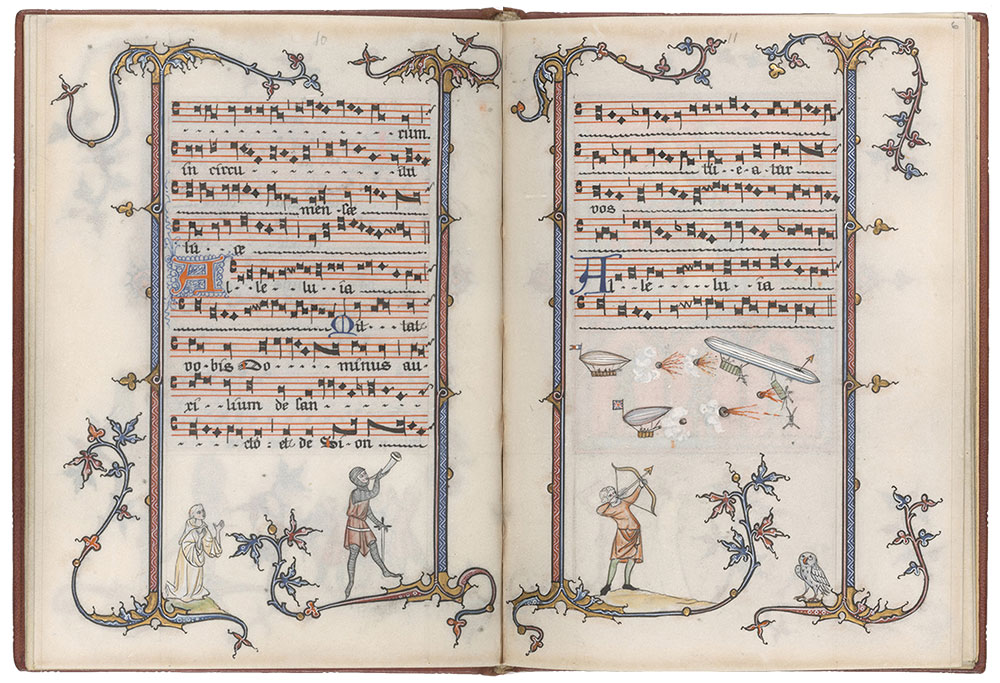 10
rum.
in circu - - - - - - - itu
- - - - - men - sæ
tu - - - æ
Al - le - lu - ia
Mit - - - tat
vo - bis Do - - - - minus au -
xi - - lium de san - - - - - -
cto : et de Si - on
11
6
tu - e - a - tur
vos
Al - le - lu - ia